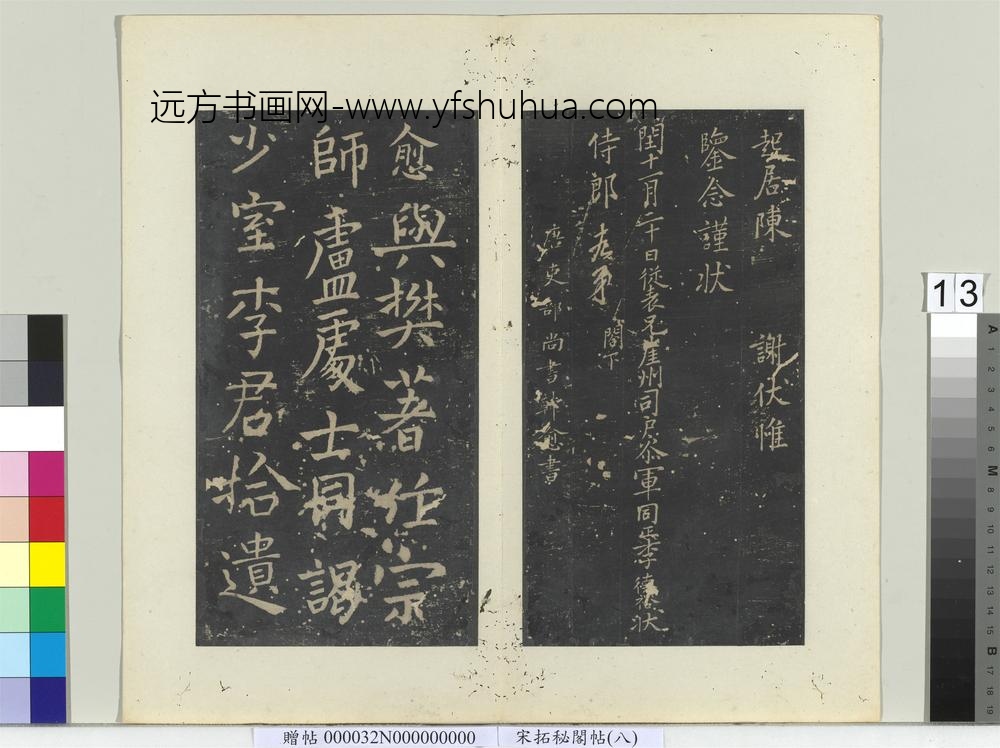 远方书画网-www.yfshuhua.com
起居陳 謝伏惟
鑒念謹状
閏十一月二十日從表兄崖州司戶叅軍同正李德裕状
侍郎 閤下
唐吏部尚書韓愈書
愈與樊著作宗
師盧處士同謁
少室李君拾遺
13
A 1 2 3 4 5 6 M 8 9 10 11 12 13 14 15 B 17 18 19
贈帖 000032N000000000 宋拓秘閣帖(八)